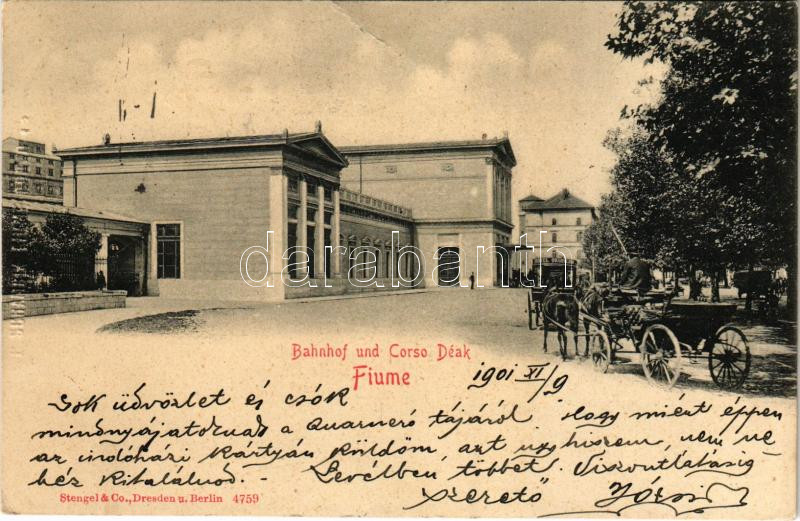 darabanth
Bahnhof und Corso Déak
Fiume
1901 XI/9
Sok üdvözlet és csók
mindnyájatoknak a Quarneró tájáról. Hogy miért éppen
az indóházi kártyán küldöm, azt ugy hiszem, nem ne
héz kitalálnod. - Levélben többet. Viszontlátásig
szerető Józsi
Stengel & Co., Dresden u. Berlin 4759